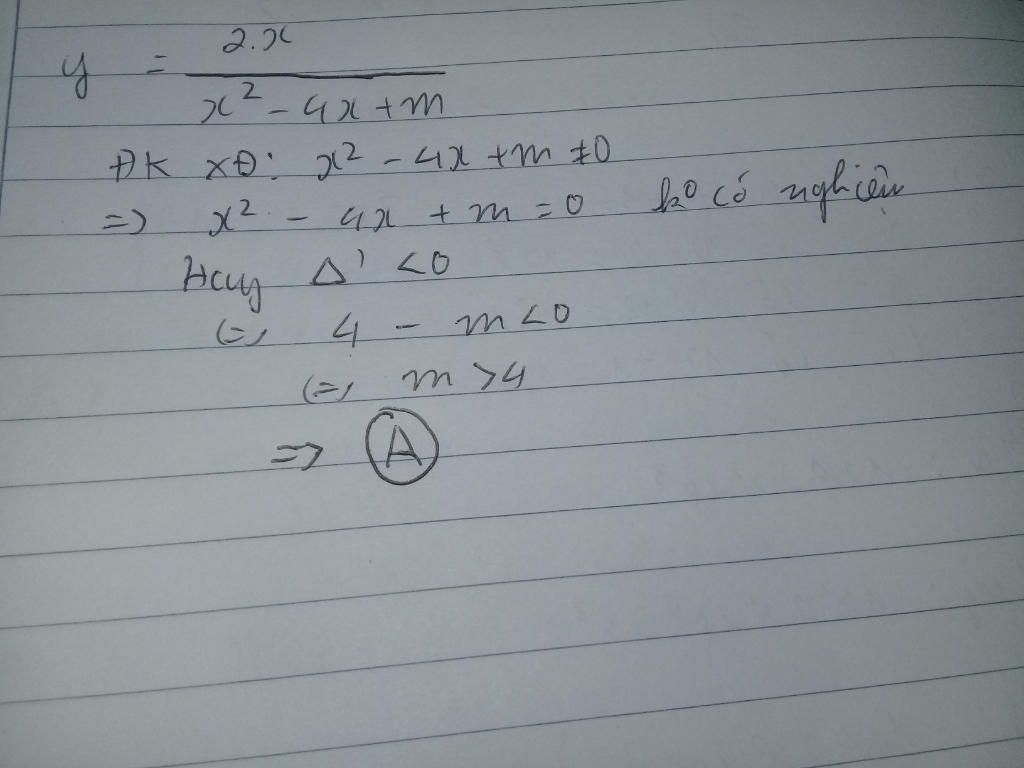 y = \frac{2.x}{x^2 - 4x + m}
ĐK XĐ: x^2 - 4x + m ≠ 0
=> x^2 - 4x + m = 0 ko có nghiệm
Hay Δ' < 0
<=> 4 - m < 0
<=> m > 4
=> A